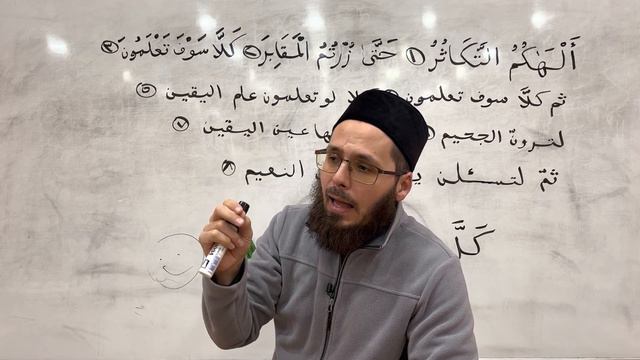 أَلْهَىٰكُمُ التَّكَاثُرُ ١ حَتَّىٰ زُرْتُمُ الْمَقَابِرَ ٢ كَلَّا سَوْفَ تَعْلَمُونَ ٣
ثم كلَّا سوف تعلمون لو تعلمون علم اليقين ٥
لترونّ الجحيم عين اليقين ٧
ثمّ لتسئلن النعيم ٨
كَلَّا